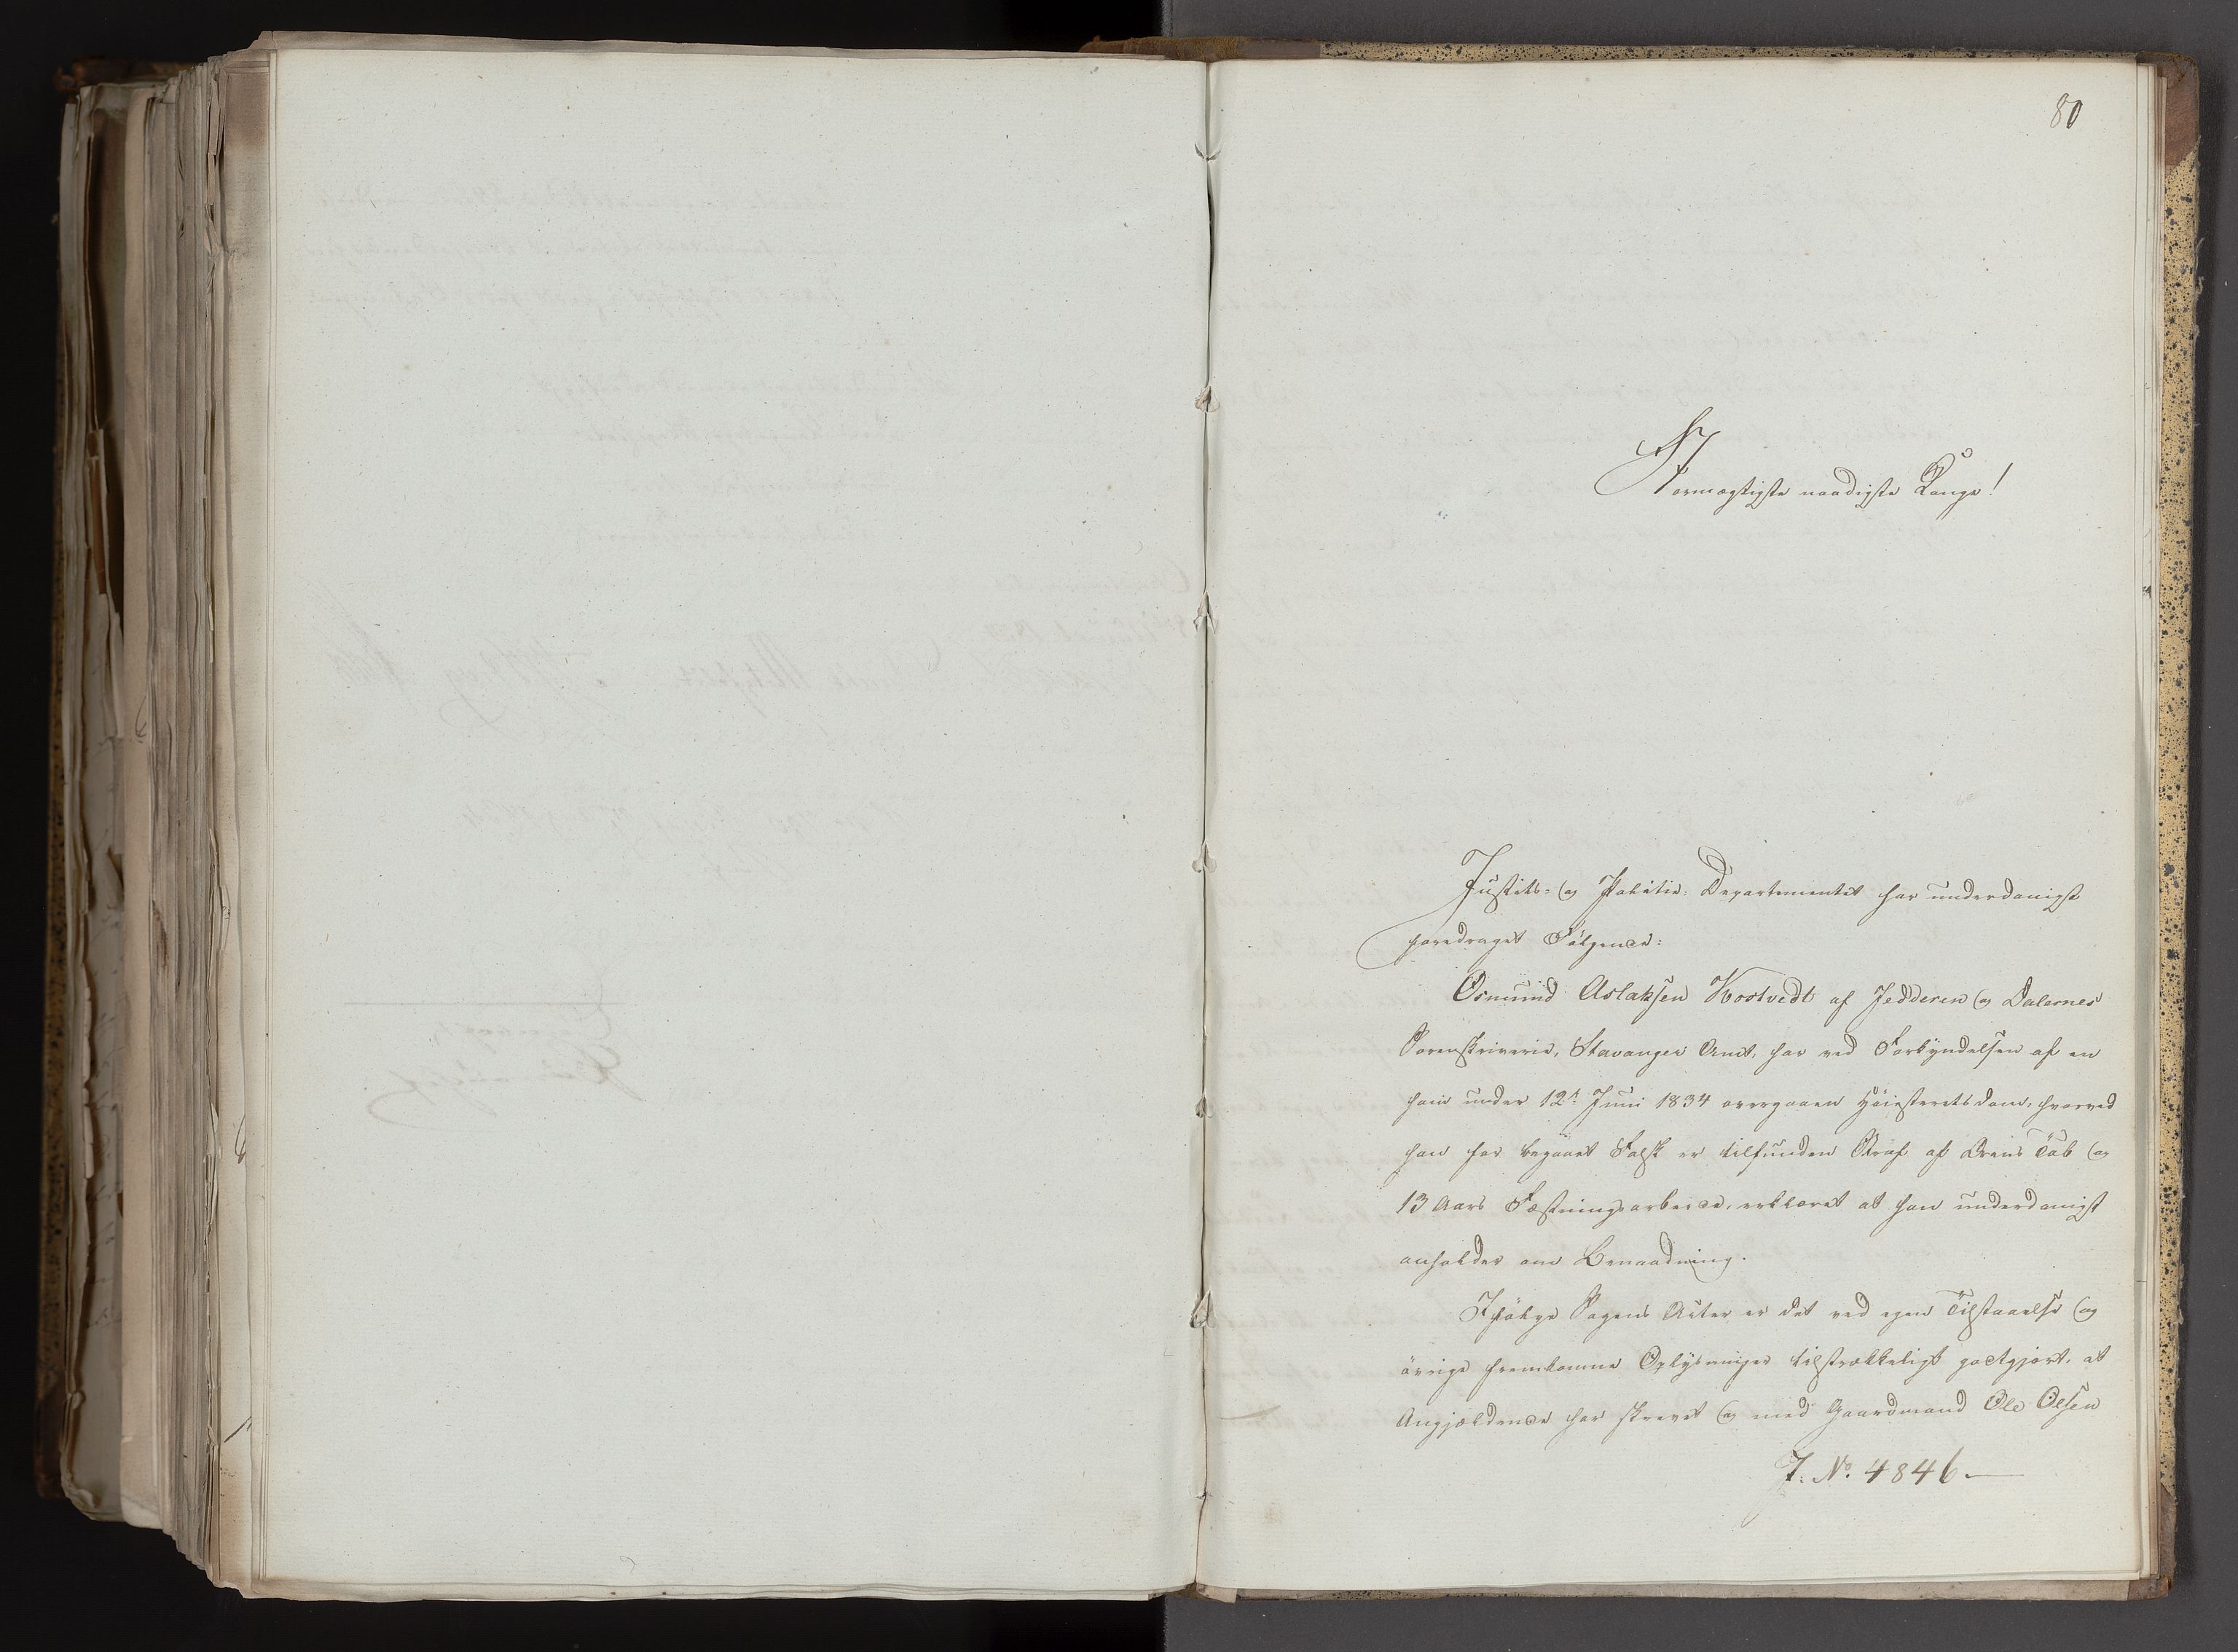 80
Stormægtigste naadigste Konge!
Justits- og Politie-Departementet har underdanigst
foredraget Følgende:
Osmund Aslaksen Kostvedt af Jedderen og Dalernes
Sorenskriverie, Stavanger Amt, har ved Forkyndelsen af en
ham under 12te Juni 1834 overgaaen Høiesteretsdom, hvorved
han for begaaet Falsk er tilfunden Straf af Ærens Tab og
13 Aars Fæstningsarbeide, erklæret at han underdanigst
anholder om Benaadning.
Ifølge Sagens Acter er det ved egen Tilstaaelse og
øvrige fremkomne Oplysninger tilstrækkeligt godtgjort, at
Angjældende har skrevet og med Gaardmand Ole Olsen
J. No. 4846 —